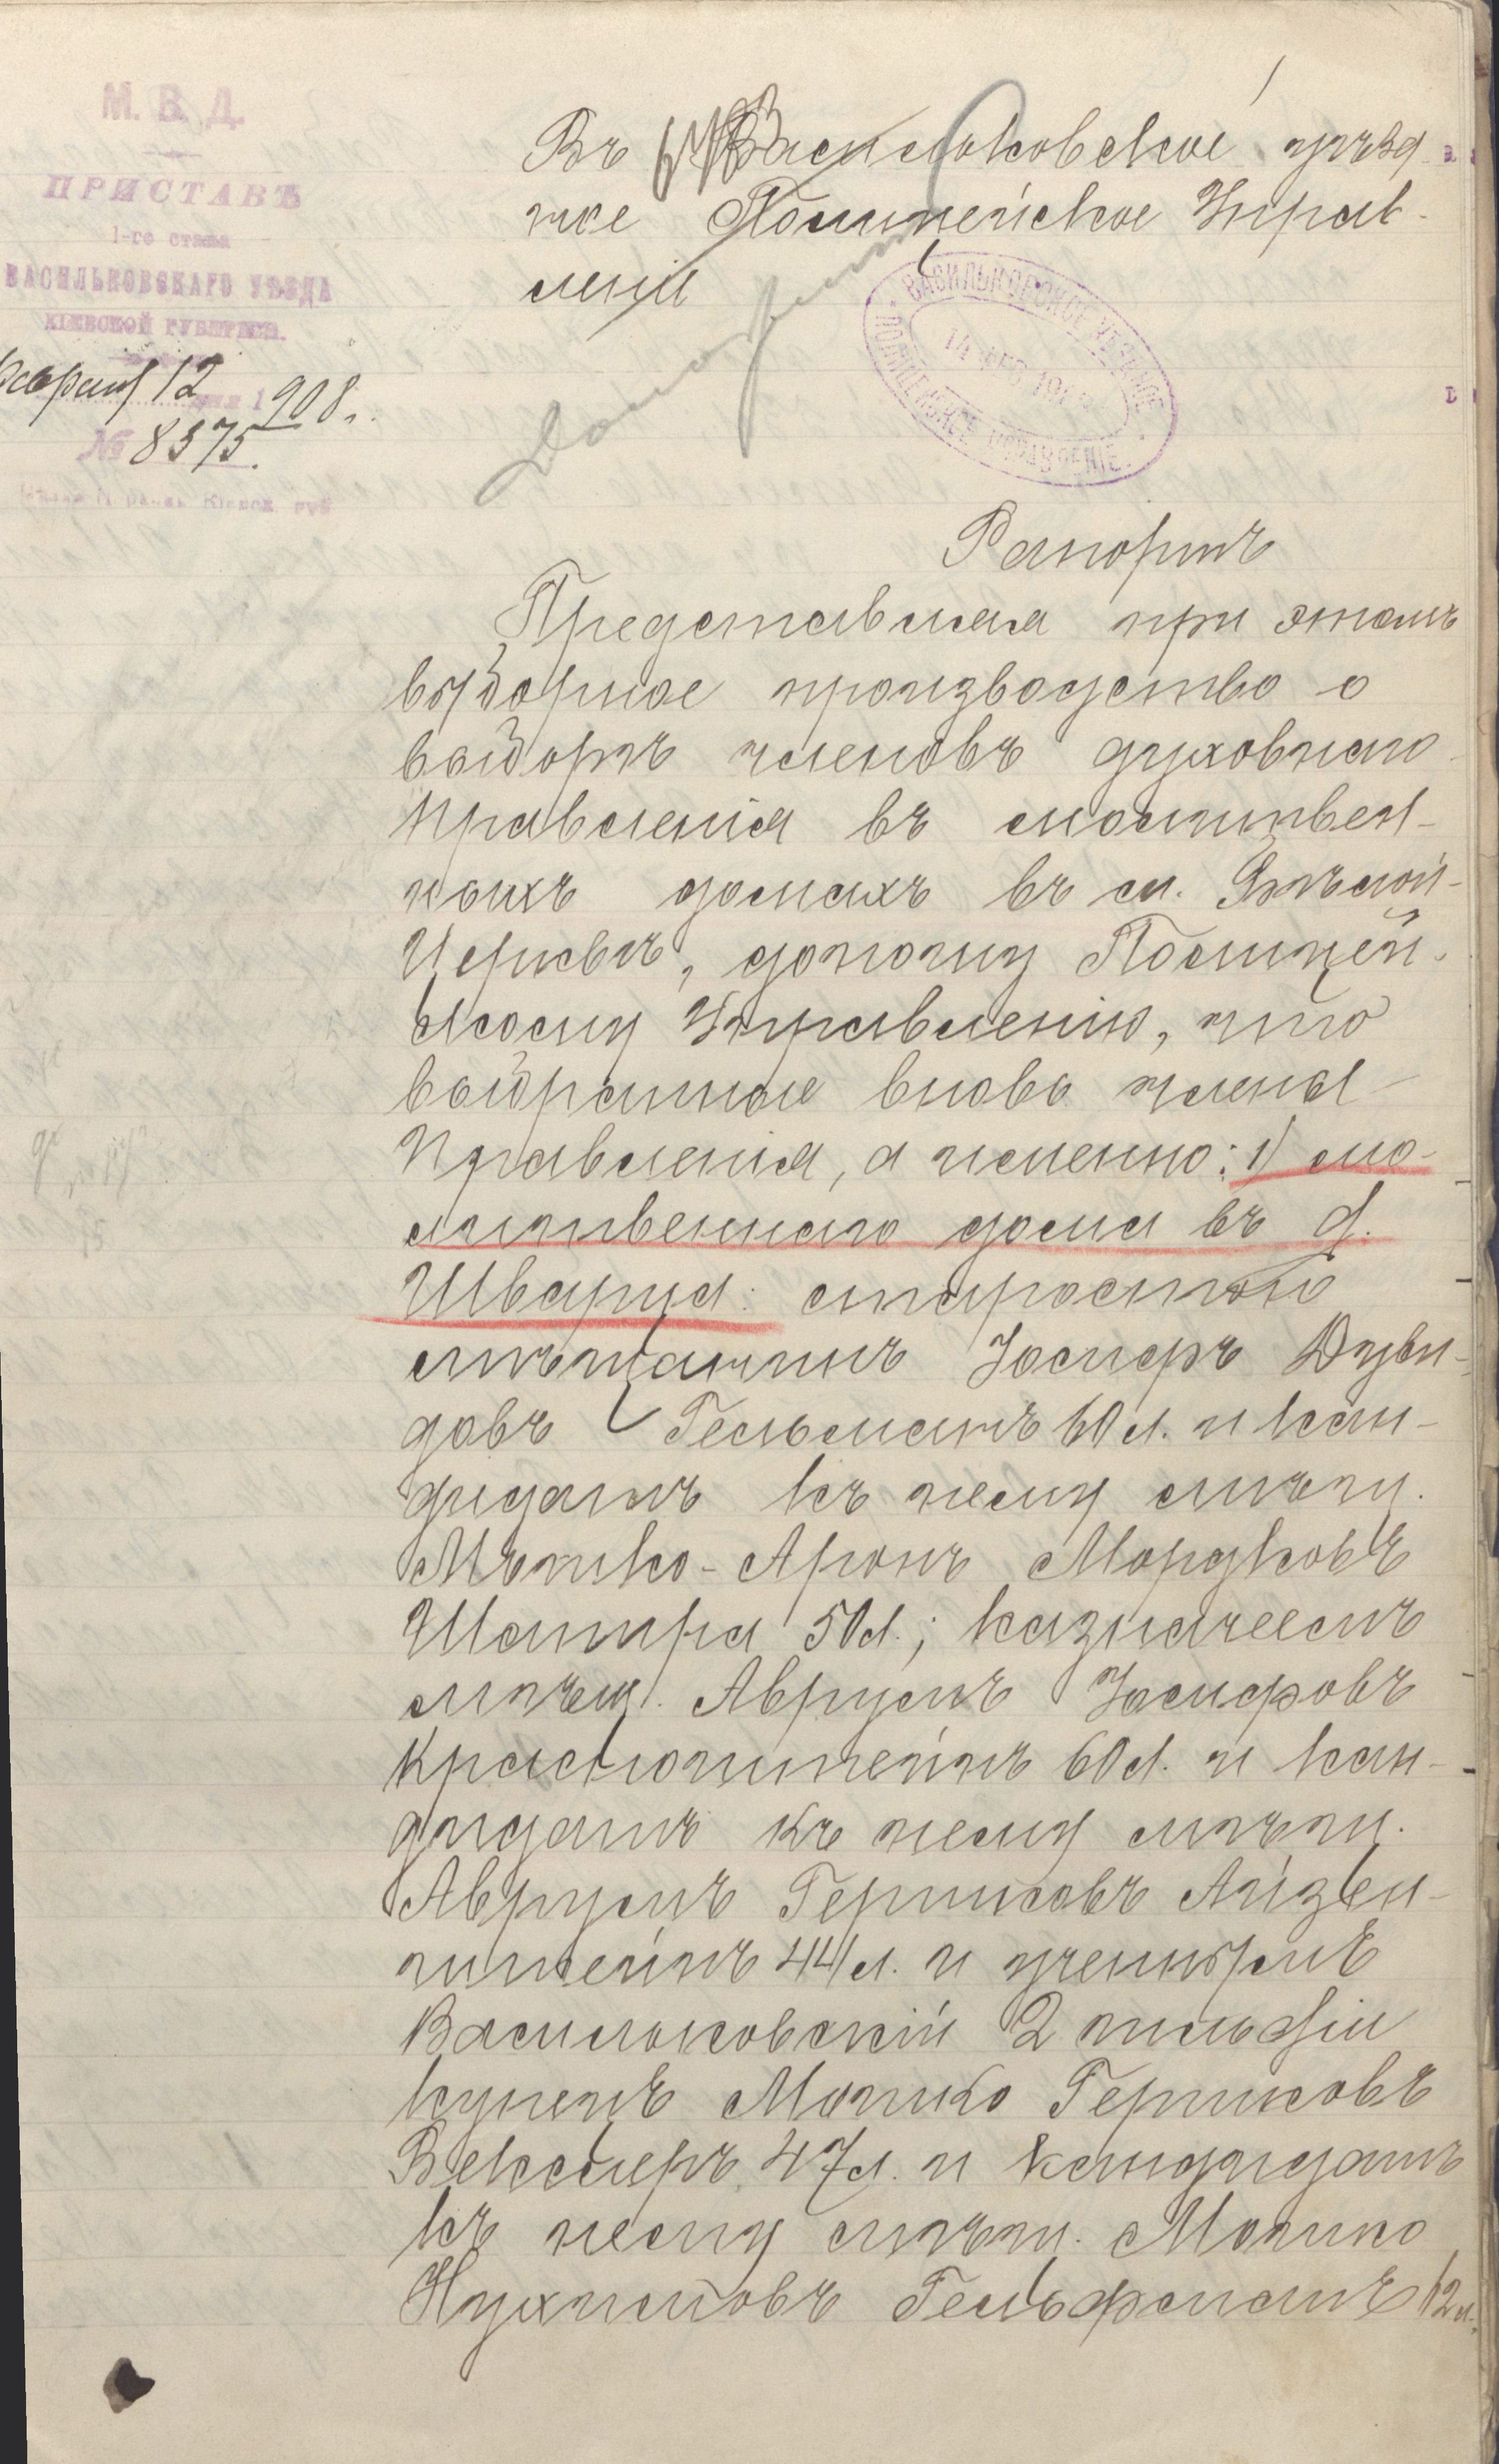 М. В. Д.
ПРИСТАВЪ
1-го стана
ВАСИЛЬКОВСКАГО УѢЗДА
КІЕВСКОЙ ГУБЕРНІИ.
12
1908 г.
№ 8575.
Въ Васильковское уѣзд
ное Полицейское Управ-
леніе
ВАСИЛЬКОВСКОЕ УѢЗДНОЕ
ПОЛИЦЕЙСКОЕ УПРАВЛЕНІЕ.
Рапортъ
Представляя при этомъ
выборное производство о
выборѣ членовъ духовнаго
Правленія въ молитвен-
ныхъ домахъ въ м. Бѣлой-
Церквѣ, доношу Полицей-
скому Управленію, что
выбранные вновь члены
Правленія, а именно: 1) мо-
литвеннаго дома въ д.
Шварца: старостою
мѣщанинъ Іосифъ Дуви-
довъ Гельманъ 60 л. и кан-
дидатъ къ нему мѣщ.
Мошко-Аронъ Мордковъ
Шапира 50 л.; казначеемъ
мѣщ. Аврумъ Іосифовъ
Краснопитейнъ 60 л. и кан-
дидатъ къ нему мѣщ.
Аврумъ Гершковъ Айзен-
штейнъ 44 л. и ученымъ
Васильковскій 2 гильдіи
купецъ Мошко Гершковъ
Векслеръ 47 л. и кандидатъ
къ нему мѣщ. Мошко
Нухимовъ Гельфманъ